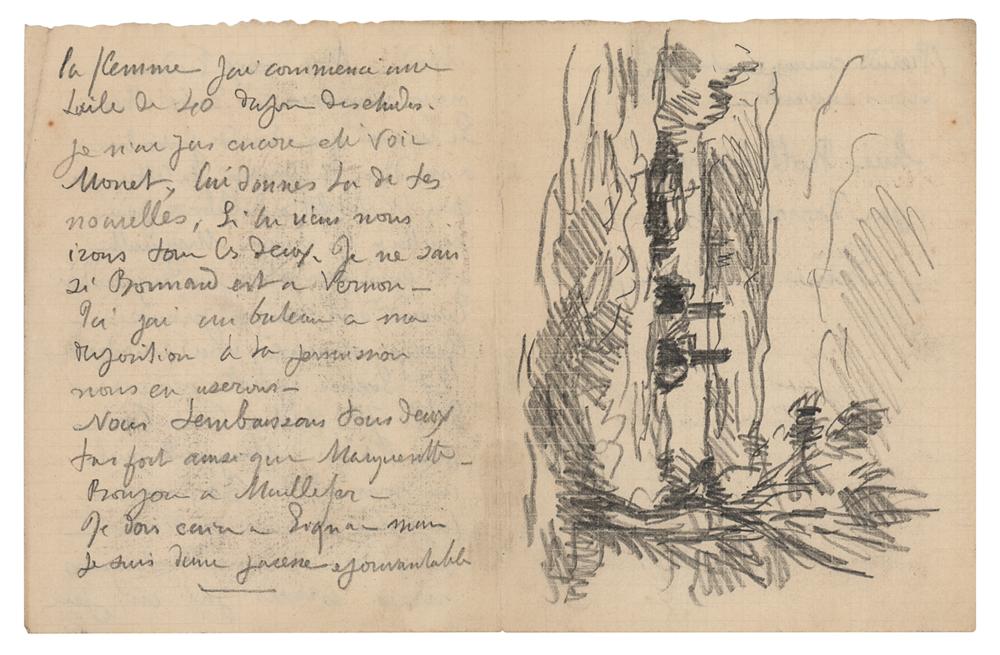 la femme J'ai commencé une
toile de 40 des etudes.
je n'ai pas encore été voir
Monet, lui donnes tu de tes
nouvelles, Si tu viens nous
irons tous les deux. Je ne sais
si Bonnard est a Vernon —
Ici j'ai un bateau a ma
disposition à ta
nous en userons —
Nous t'embrassons tous deux
tres fort ainsi que Marguerite —
Bonjour a
Je dois ecrire a Signac mais
Je suis d'une paresse epouvantable